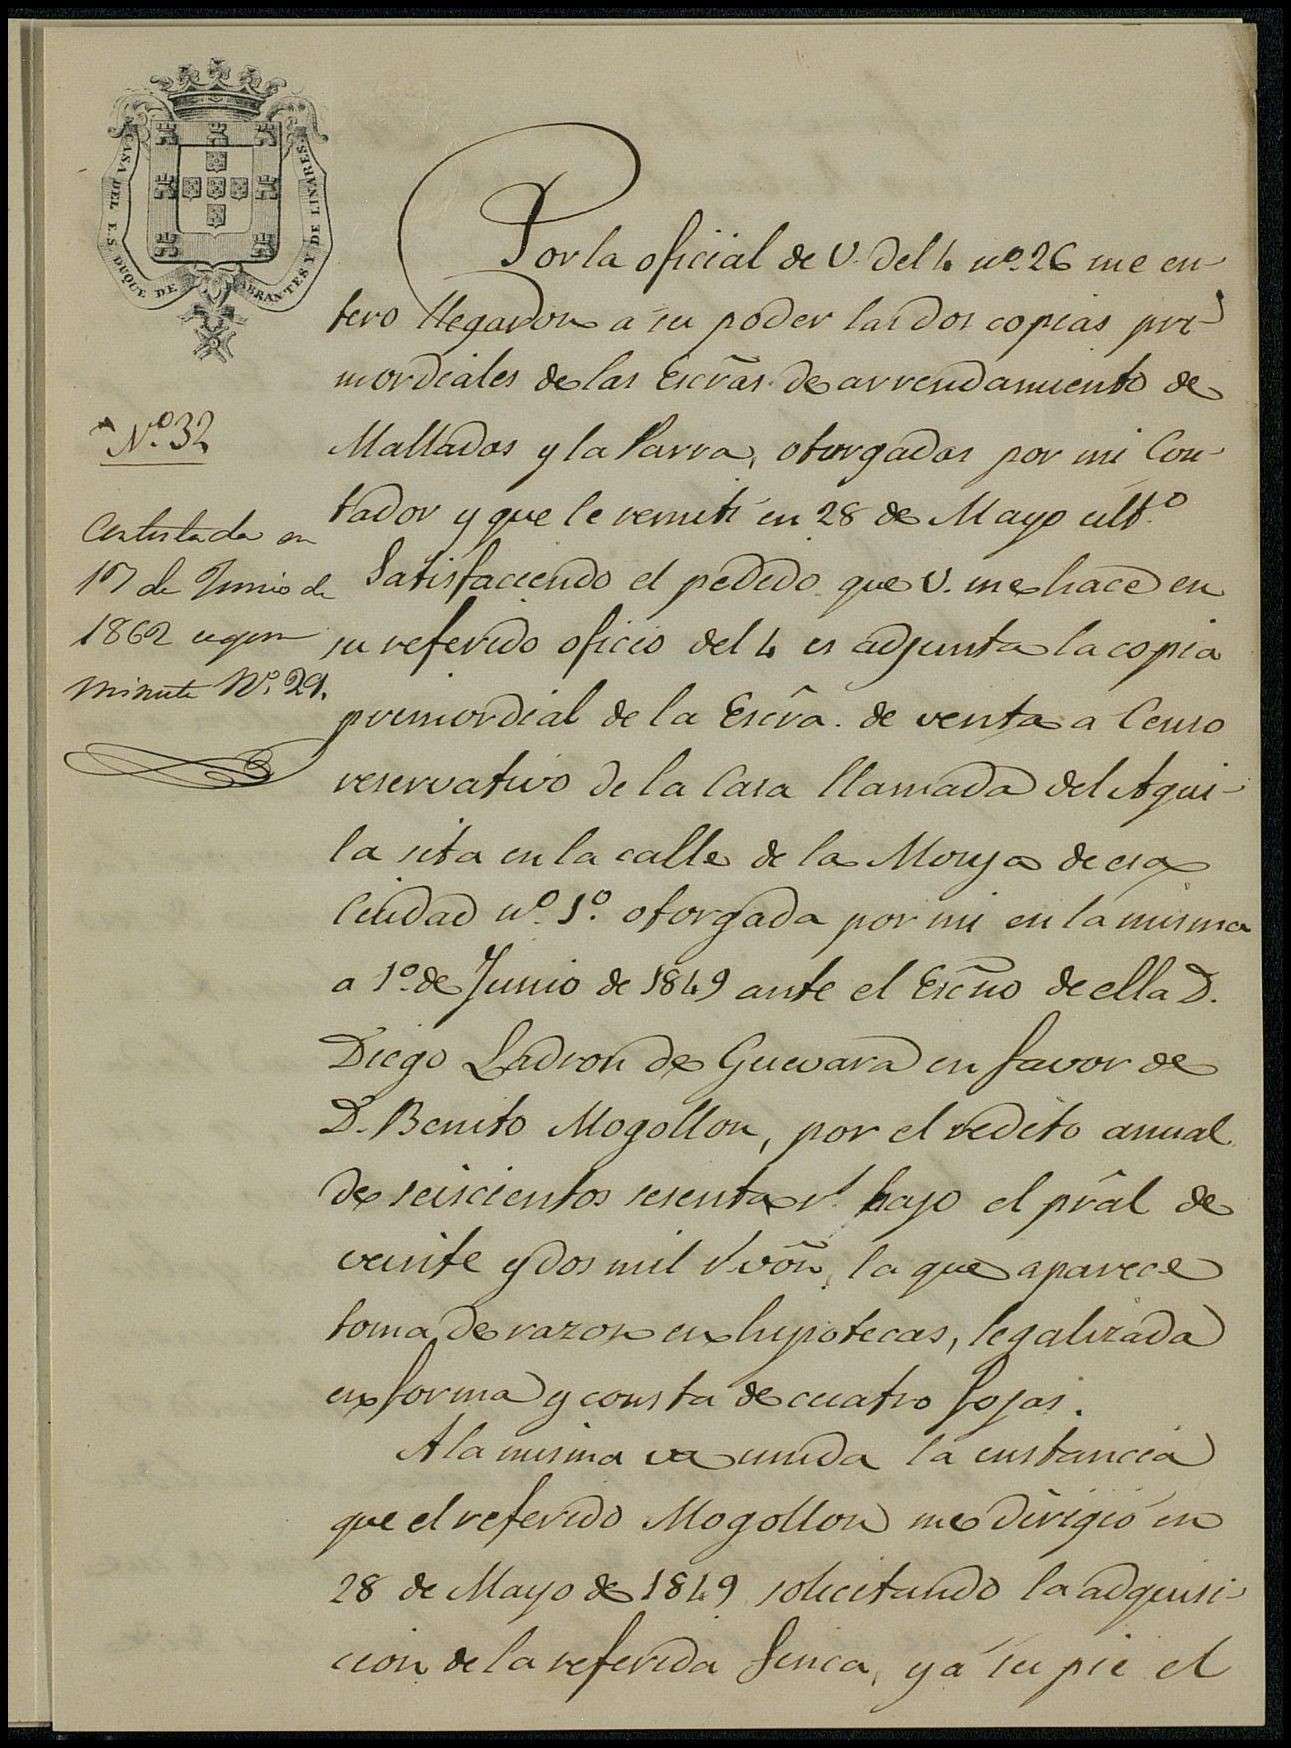 CASA DEL E.S. DUQUE DE ABRANTES Y DE LINARES
Nº 32
Contestada en
17 de Junio de
1862 segun
minuta Nº 29.
Por la oficial de V. del 4 nº 26 me en-
tero llegaron a su poder las dos copias pri-
mordiales de las Escrãs. de arrendamiento de
Mallados y la Parra, otorgadas por mi Con-
tador y que le remiti en 28 de Mayo ultº
Satisfaciendo el pedido que V. me hace en
su referido oficio del 4 es adjunta la copia
primordial de la Escrã. de venta a Censo
reservativo de la Casa llamada del Aqui-
la sita en la calle de la Monja de esa
Ciudad nº 1º. otorgada por mi en la misma
a 1º de Junio de 1849 ante el Escño de ella D.
Diego Ladron de Guevara en favor de
D. Benito Mogollon, por el redito anual
de seiscientos sesenta rˢ bajo el prãl de
veinte y dos mil rˢ võn, la que aparece
toma de razon en hipotecas, legalizada
en forma y consta de cuatro fojas.
A la misma va unida la instancia
que el referido Mogollon me dirigió en
28 de Mayo de 1849 solicitando la adquisi-
cion de la referida finca, y á su pie el